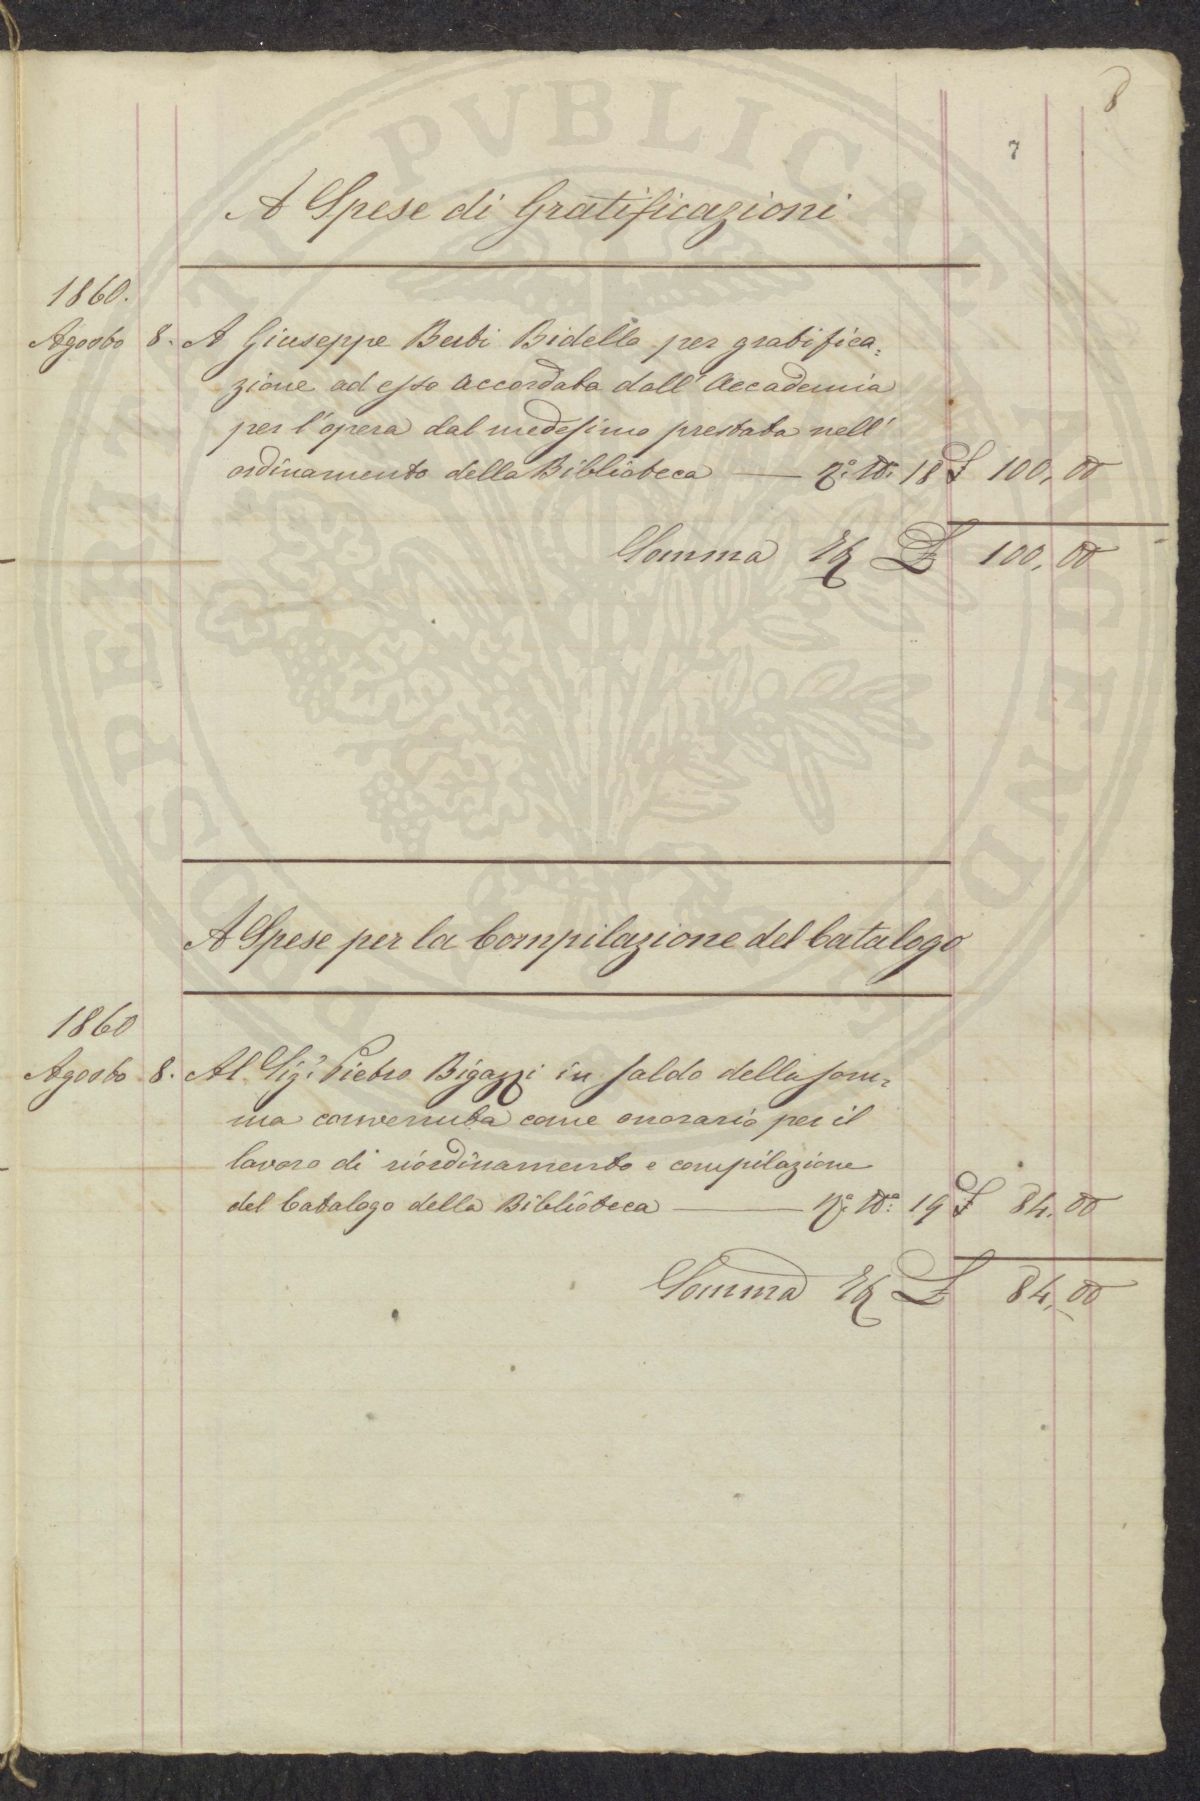 8
7
A Spese di Gratificazioni
1860.
Agosto 8. A Giuseppe Berti Bidello per gratifica=
zione ad esso accordata dall' Accademia
per l'opera dal medesimo prestata nell'
ordinamento della Biblioteca — 18 £ 100,00
Somma £ 100,00
A Spese per la Compilazione del Catalogo
1860
Agosto 8. Al Sigr Pietro Bigazzi in saldo della som=
ma convenuta come onorario per il
lavoro di riordinamento e compilazione
del Catalogo della Biblioteca — 19 £ 84,00
Somma £ 84,00
PROSPERITATI PVBLICAE AVGENDAE